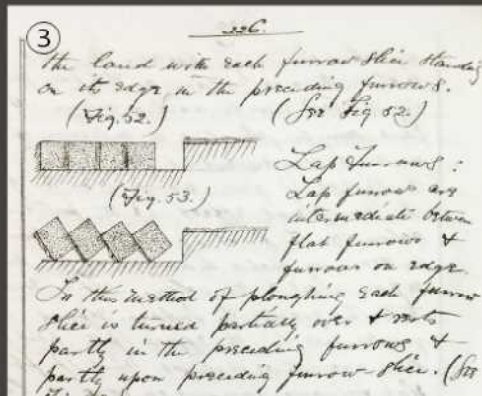 3
226.
the land with each furrow slice standing
on its edge in the preceding furrows.
(Fig. 52.) (See Fig 52.)
Lap Furrows:
(Fig. 53.)
Lap furrows are
intermediate between
flat furrows &
furrows on edge.
In this method of ploughing each furrow
slice is turned partially over & rests
partly in the preceding furrows &
partly upon preceding furrow-slice. (See